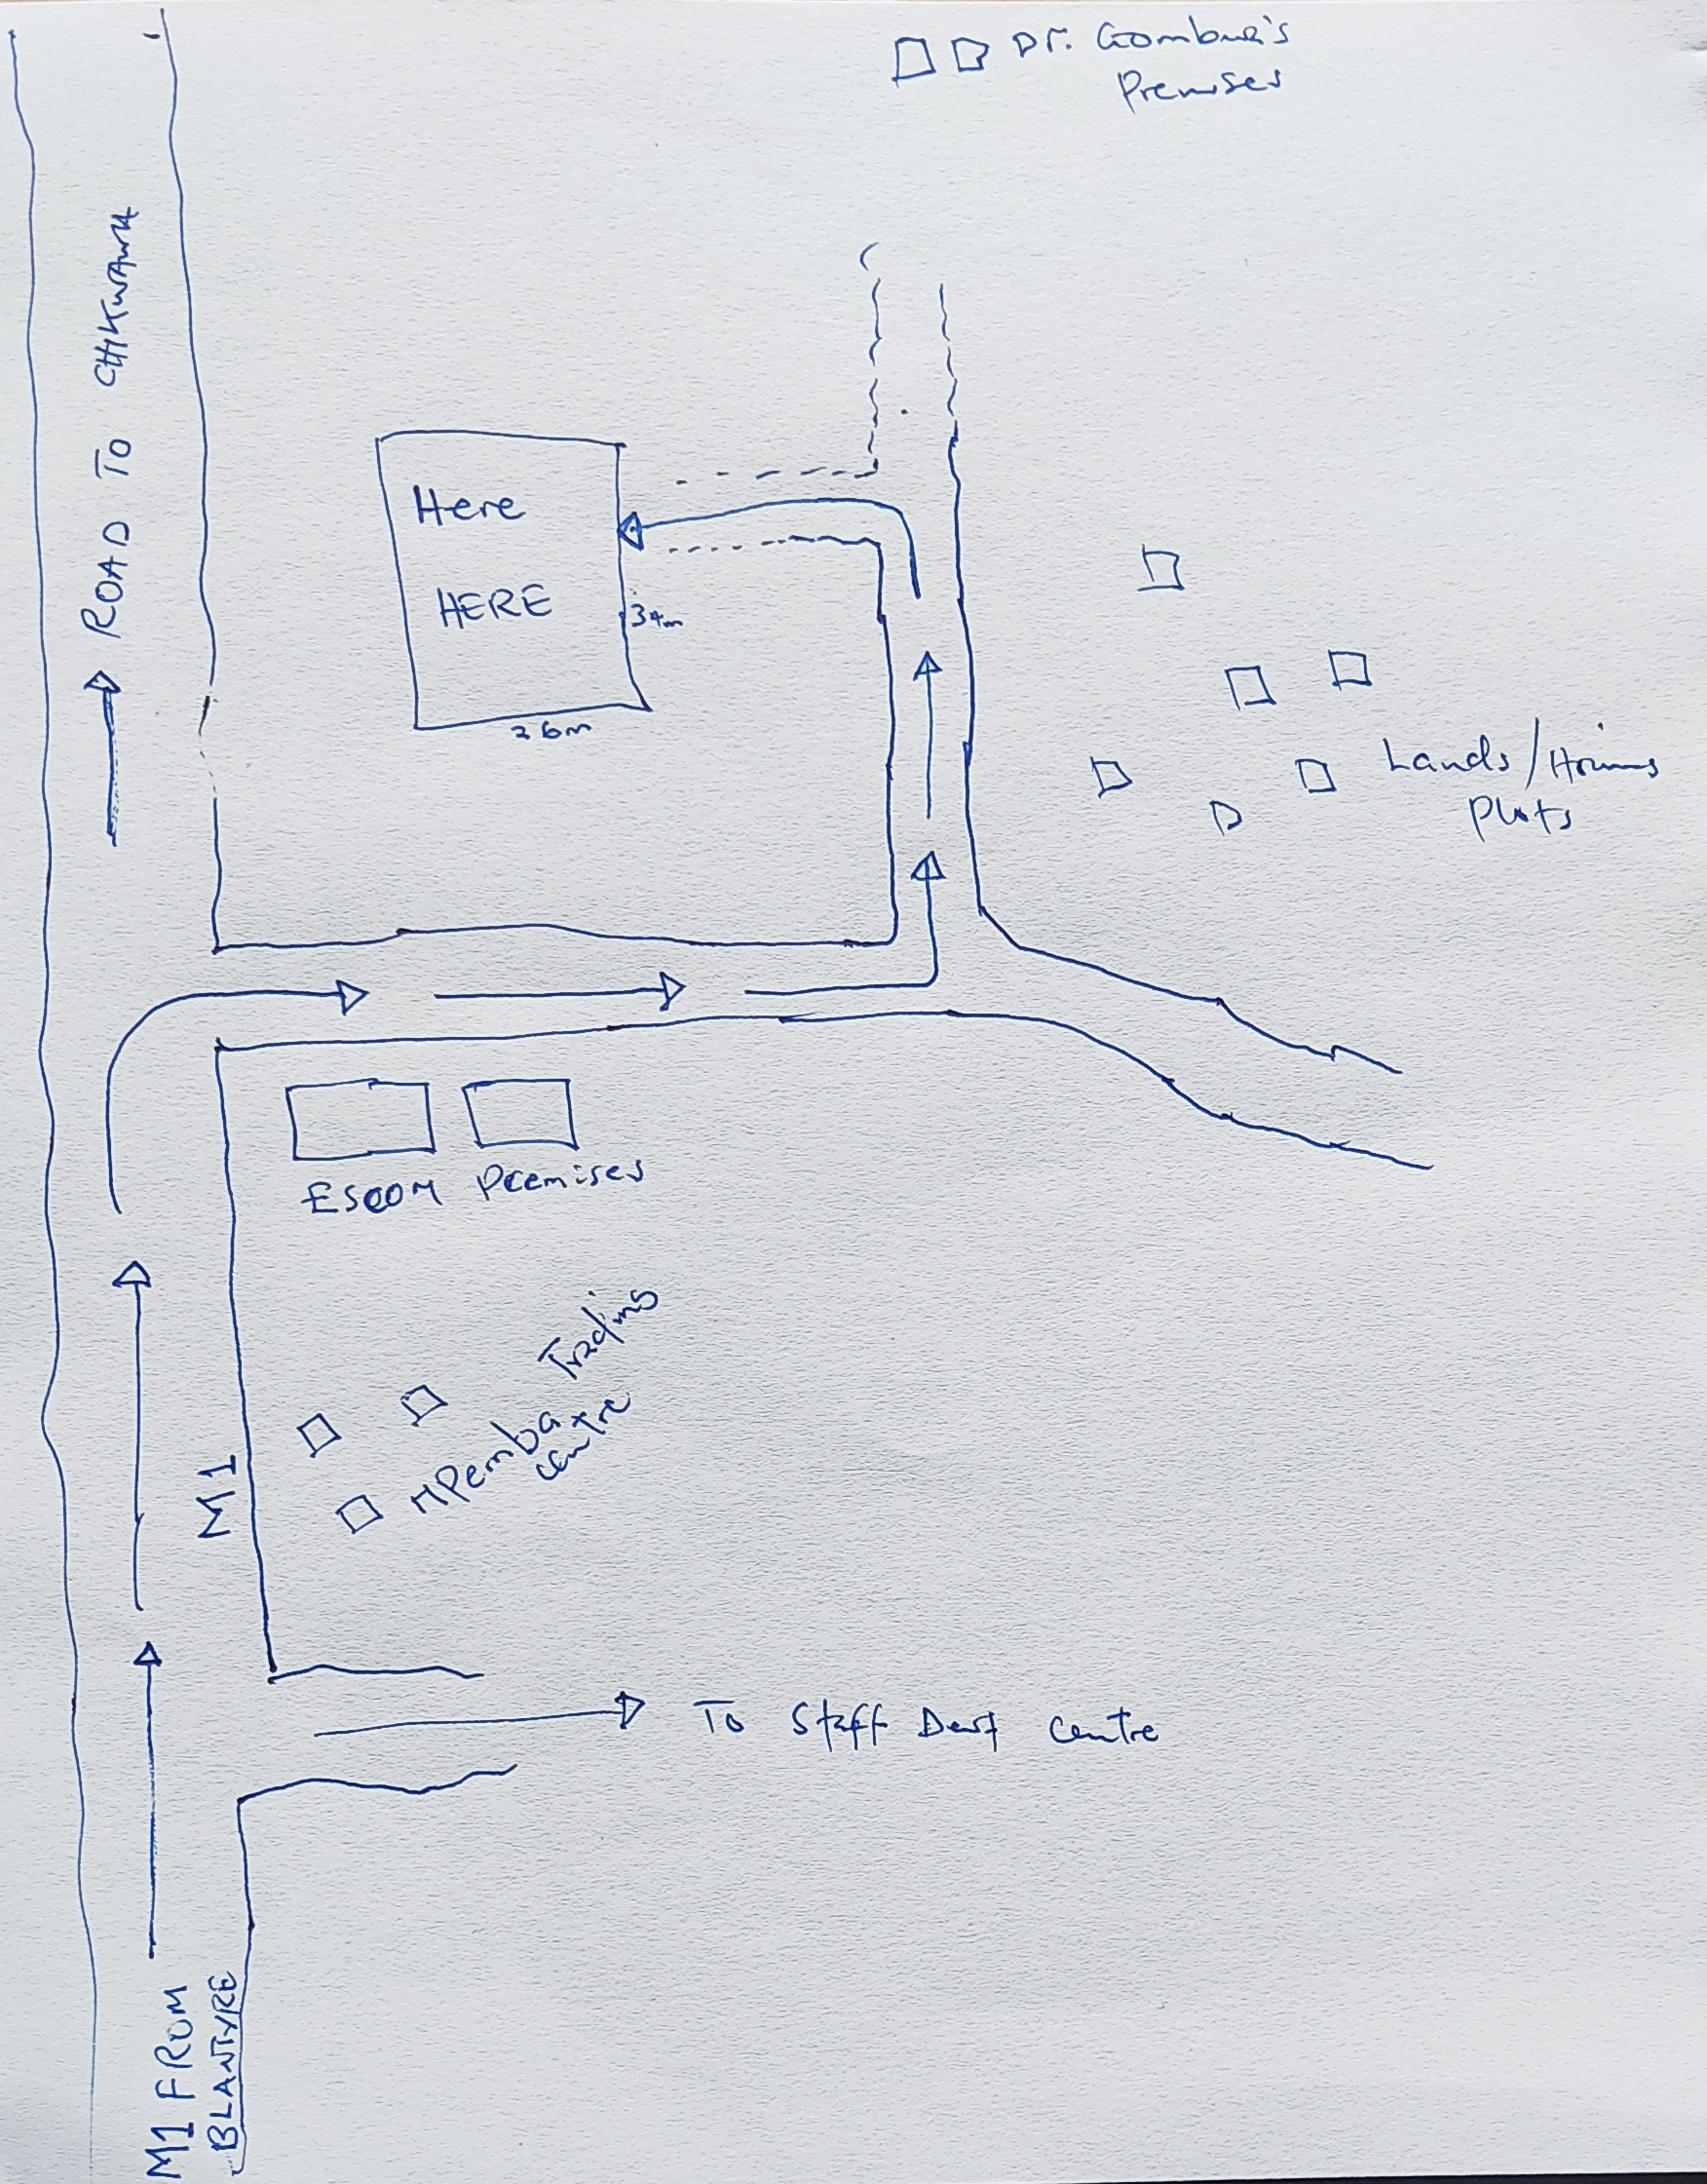 Dr. Gombwa's
Premises
ROAD TO CHIKWAWA
Here
HERE
34m
26m
Lands/Housing
Plots
ESCOM Premises
MPemba Trading
centre
M1
To Staff Devt Centre
M1 FROM
BLANTYRE